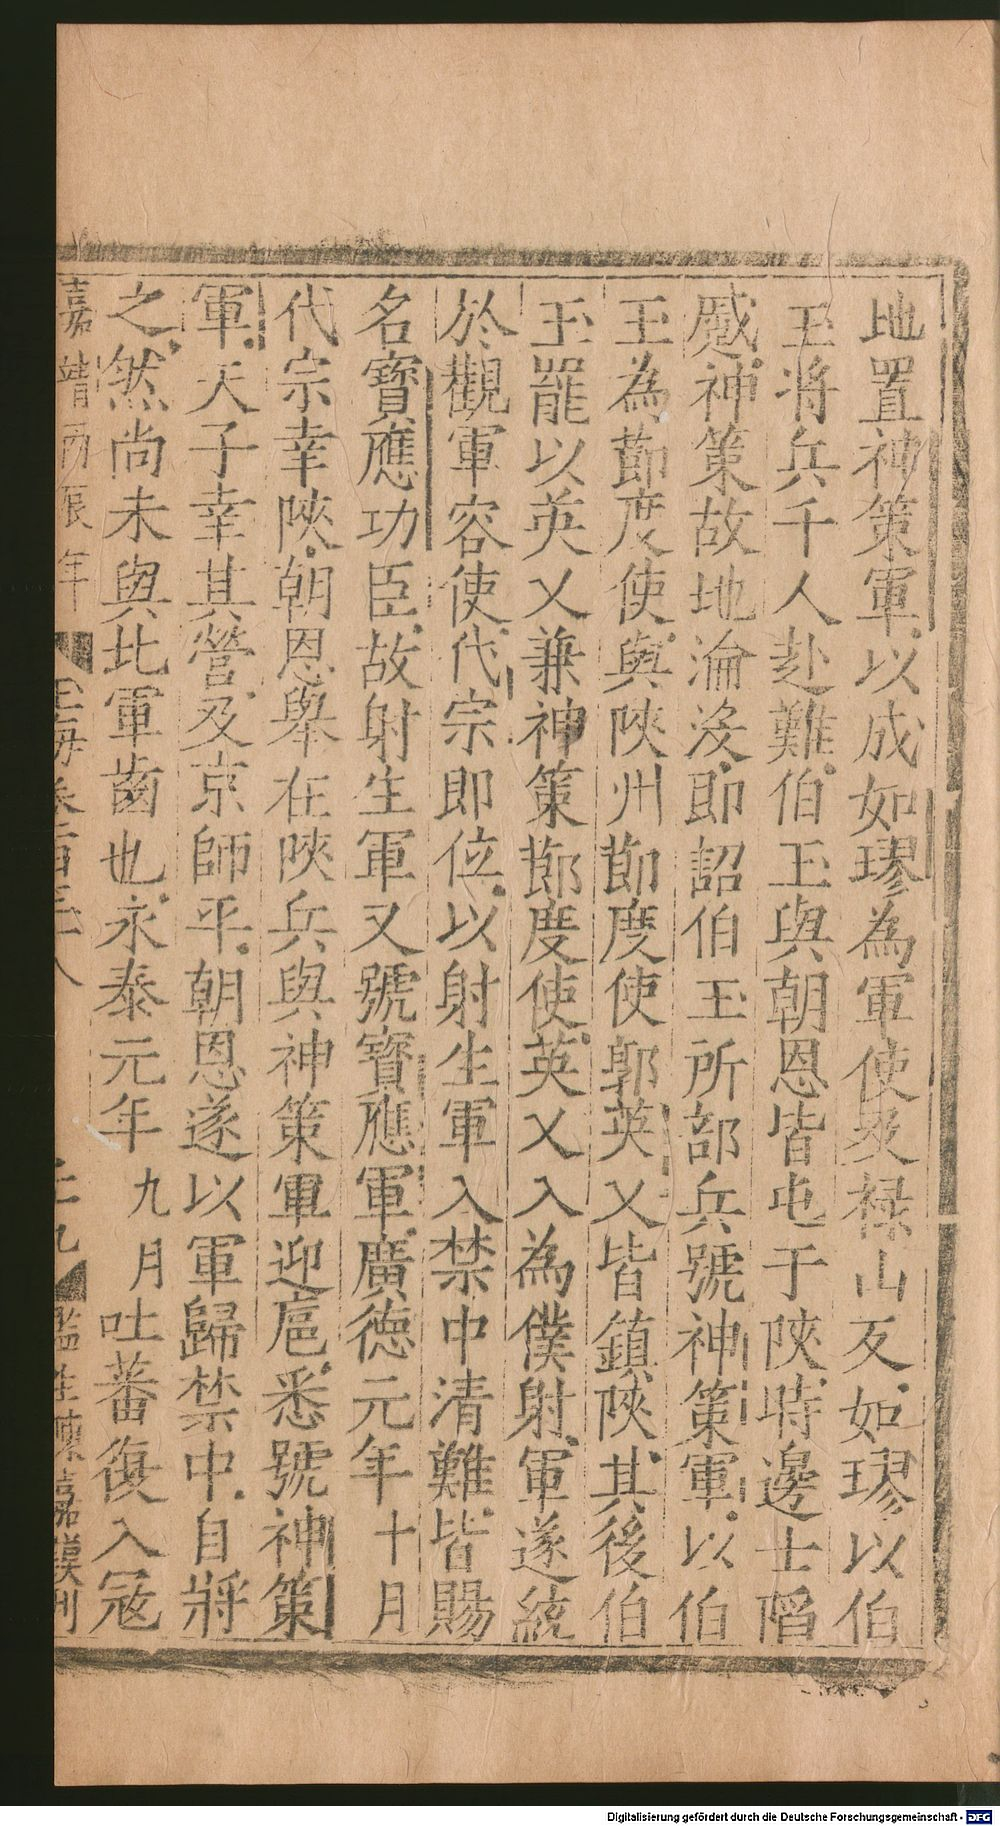 地置神策軍以成如璆為軍使及禄山反如璆以伯
玉將兵千人赴難伯玉與朝恩皆屯于陜時邊士陷
蹙神策故地淪没即詔伯玉所部兵號神策軍以伯
玉為節度使與陜州節度使郭英乂皆鎮陜其後伯
玉罷以英乂兼神策節度使英乂入為僕射軍遂統
於觀軍容使代宗即位以射生軍入禁中清難皆賜
名寶應功臣故射生軍又號寶應軍廣徳元年十月
代宗幸陜朝恩舉在陜兵與神策軍迎扈悉號神策
軍天子幸其營及京師平朝恩遂以軍歸禁中自將
之然尚未與北軍齒也永泰元年九月吐蕃復入冦
嘉靖丙辰年 玉海卷百三十八 十九 監生陳嘉謨刊
Digitalisierung gefördert durch die Deutsche Forschungsgemeinschaft - DFG